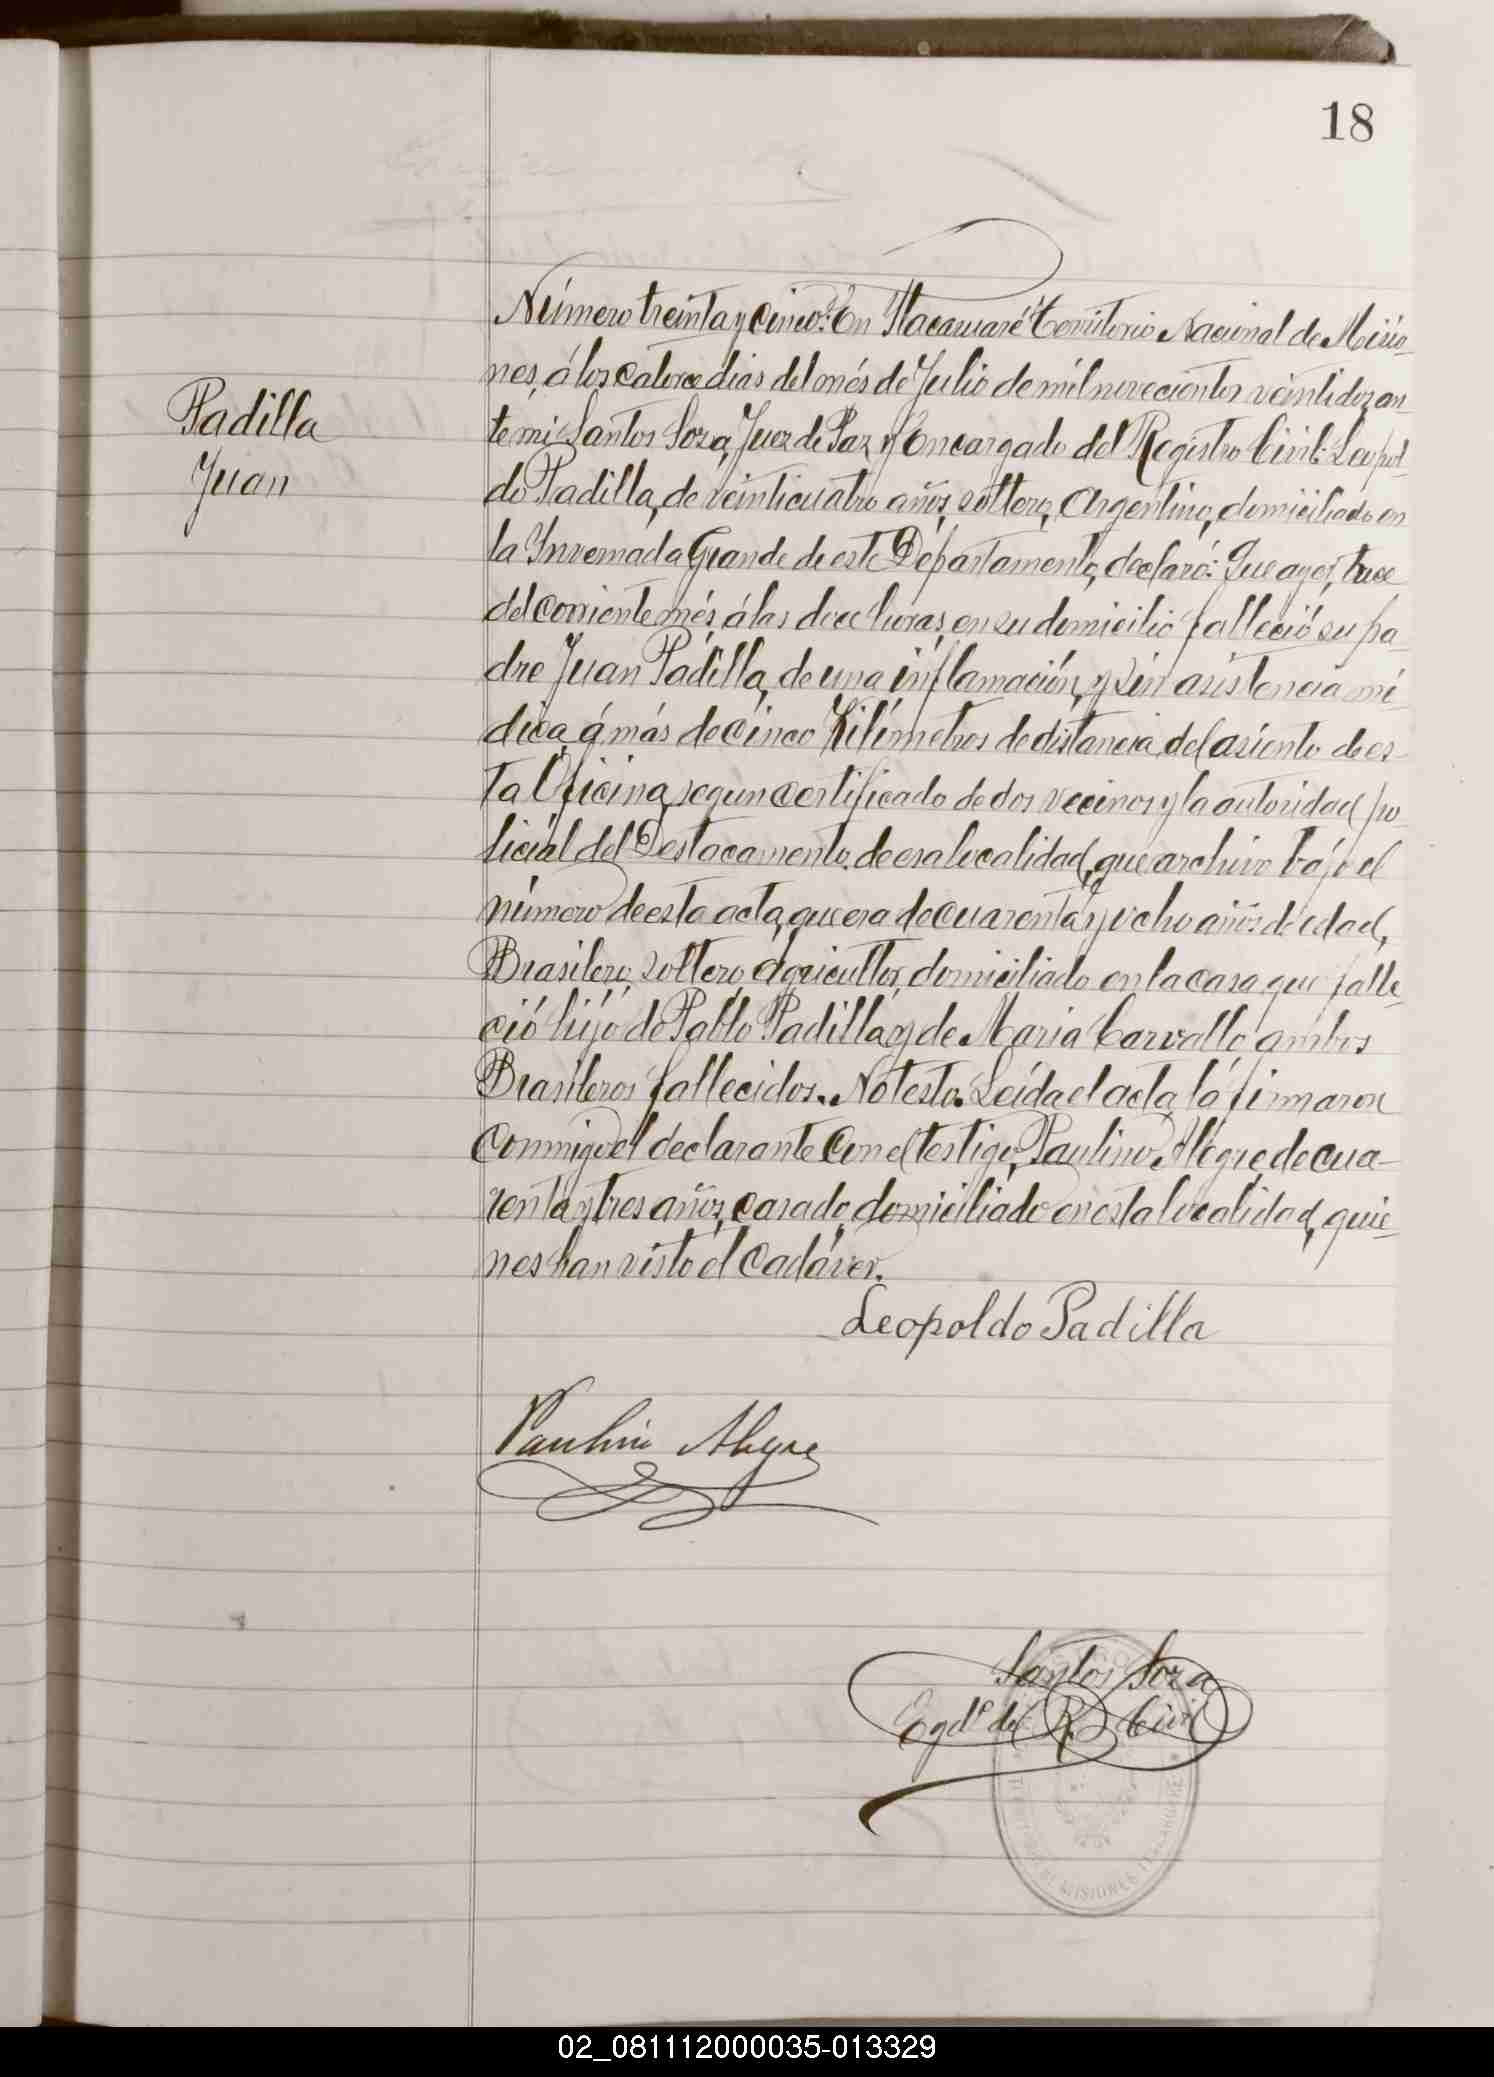 18
Padilla
Juan
Número treinta y cinco: En Itacaruaré Territorio Nacional de Misio-
nes, á los catorce dias del més de Julio de mil novecientos veintidos, an
te mi Santos Soza, Juez de Paz y Encargado del Registro Civil: Leopol
do Padilla, de veinticuatro años, soltero, Argentino, domiciliado en
la Invernada Grande de este Departamento, declaró: Que ayer, trece
del corriente més, á las doce horas, en su domicilio falleció su pa-
dre Juan Padilla, de una inflamación, y sin asistencia mé-
dica, á más de cinco Kilómetros de distancia del asiento de es-
ta Oficina, segun certificado de dos vecinos y la autoridad po-
licial del Destacamento de esa localidad, que archivo bajo el
número de esta acta, que era de cuarenta y ocho años de edad,
Brasilero, soltero, agricultor, domiciliado en la casa que falle-
ció hijo de Pablo Padilla y de Maria Carvallo ambos
Brasileros fallecidos. No testo. Leída el acta, la firmaron
conmigo el declarante con el testigo, Paulino Alegre, de cua-
renta y tres años, casado, domiciliado en esta localidad, quie-
nes han visto el cadáver.
Leopoldo Padilla
Paulino Alegre
Santos Soza
Egdo. del R. Civil
MISIONES
02_081112000035-013329